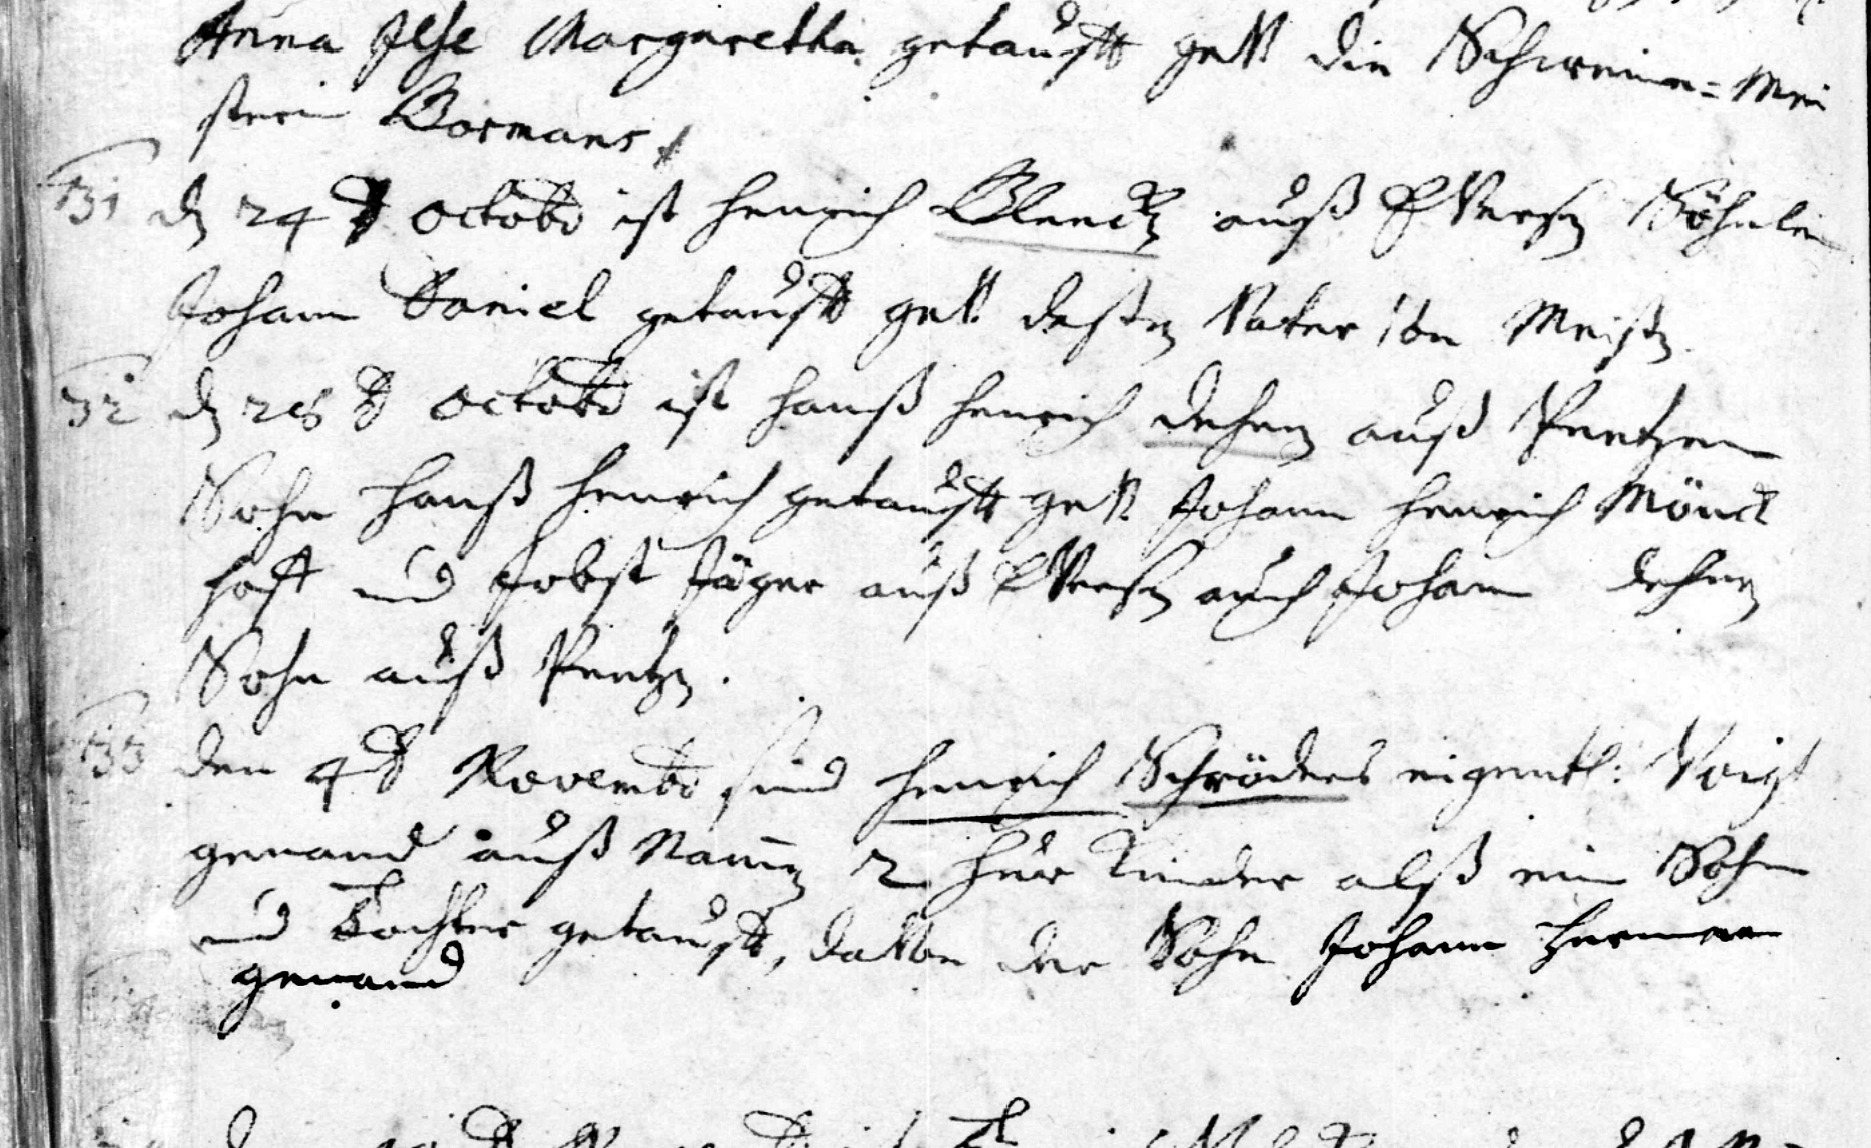 Anna Ilse Margaretha getaufft gevt. die Schweine=Mei
sterin Bormans
31 dn 24 t Octobr ist Henrich Blencken auß Eversen Söhnlein
Johann Daniel getaufft gevt. deßen Vater von Meissen
32 dn 28 t Octobr ist Hanß Henrich Dehnen auß Peetzen
Sohn Hanß Henrich getaufft gevt. Johann Henrich Mönck
hoff und Jobst Jäger auß Eversen auch Johann Dehnen
Sohn auß Peetzen.
33 den 4 t Novembr sind Henrich Schröders eigentl: Voigt
genand auß Nammen 2 Hur Kinder alß ein Sohn
und Tochter getaufft, davon der Sohn Johann Herman
genand